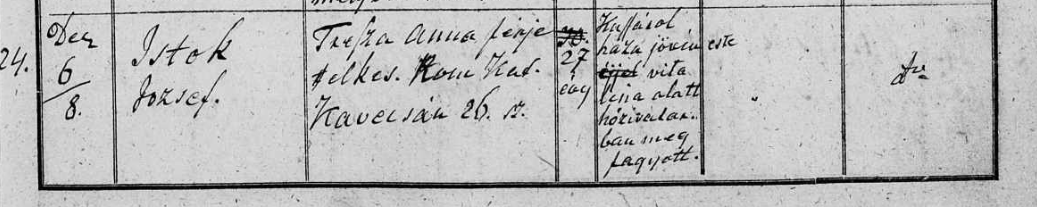 24.
Dec
6
8.
Istok
József.
Trefza Anna férje
telkes. Rom Kat.
Kavecsán 26. sz.
30.
27
év
Kassárol
haza jövén este
éjjel vita
lina alatt
hózivatar-
ban meg
fagyott.